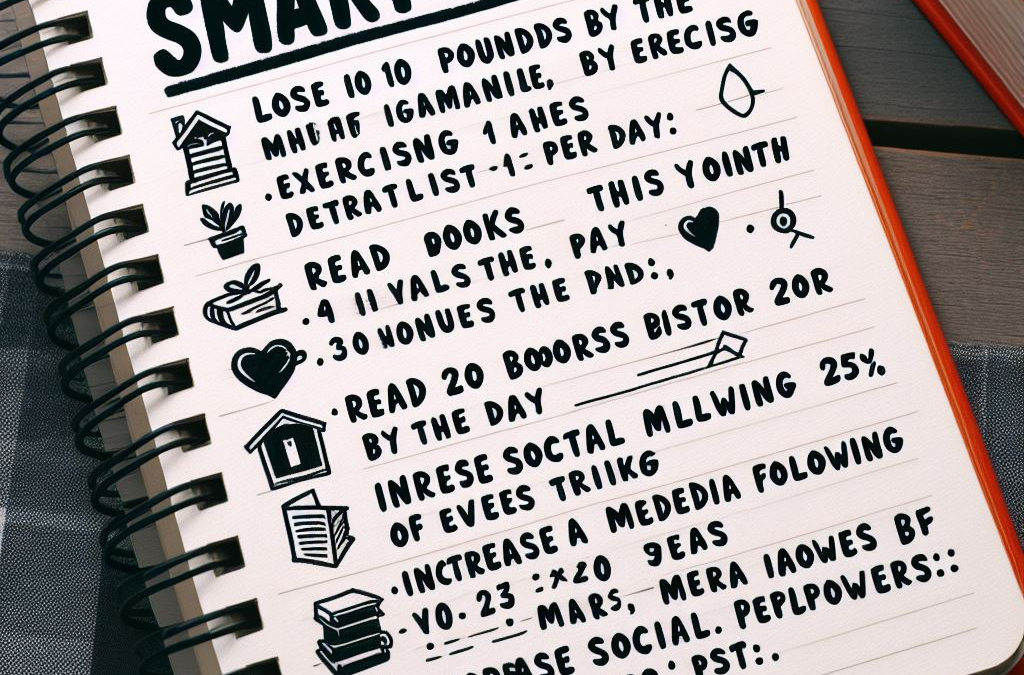 SMART
LOSE 10 10 POUNDDS BY THE
IGAMANILE, BY ERECISG
.EXERCISNG 1 AHES
DETRATLIST -1- PER DAY:
READ DOOKS THIS YOINTH
.4 11 VALS THE, PAY
.30 WONUES THE DND:,
·READ 20 BOOORSS BISTOR 20R
BY THE DAY
INRESE SOCTAL MLLWING 25%
OF EVEES TRIIKG
·INCTREASE A MEDEDIA FOLOWING
·YO. 23 :×20 9EAS
MARS, MERA IAOWES BF
SOCIAL. PEPLPOWERS::
PST:.